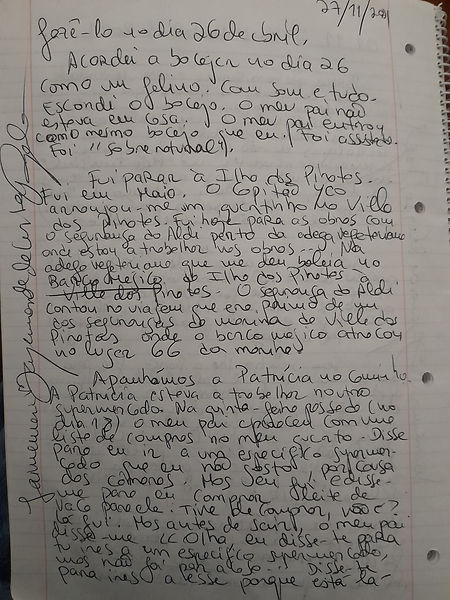 27/11/2021
fazê-lo no dia 26 de abril.
Acordei a bocejar no dia 26
como um felino. Com som e tudo.
Escondi o bocejo. O meu pai não
estava em casa. O meu pai entrou
com o mesmo bocejo que eu. Foi
Foi "sobrenatural".
Fui parar à Ilha dos Pinotes.
Fui em Maio. O Capitão
arranjou-me um quartinho na Villa
dos Pinotes. Fui hoje para as obras com
o segurança do Aldi perto da adega vegetariana
onde estou a trabalhar nas obras... Na
adega vegetariana que me deu boleia no
Barco Mágico da Ilha dos Pinotes à
Villa dos Pinotes. O segurança do Aldi
contou na viagem que era primo de um
dos seguranças da marina da Villa dos
Pinotes onde o barco mágico atracou
no lugar 66 da marina!
Apanhámos a Patrícia no caminho.
A Patrícia estava a trabalhar noutro
supermercado. Na quinta-feira passada (no
dia 18) o meu pai apareceu com uma
lista de compras no meu quarto. Disse
para eu ir a um específico supermer-
cado que eu não gosto, por causa
das câmaras. Mas eu fui e disse-
me para eu comprar leite de
vaca para ele. Tive de comprar,
lá fui. Mas antes de sair, o meu pai
disse-me "Olha eu disse-te para
tu ires a um específico supermercado,
mas não foi por acaso... Disse-te
para ires a esse porque está lá-